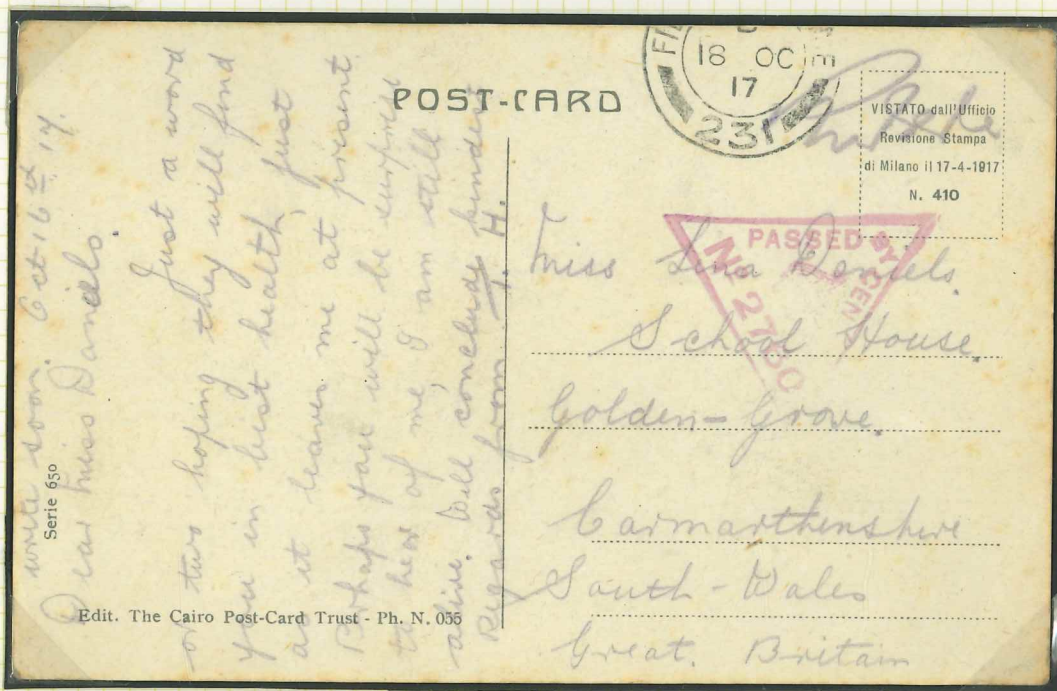 POST-CARD
18 OC
17
231
VISTATO dall'Ufficio
Revisione Stampa
di Milano il 17-4-1917
N. 410
PASSED BY CEN
No 2750
Miss Lina Daniels.
School House,
Golden-Grove,
Carmarthenshire
South-Wales
Great. Britain
write soon. Oct 16th 17.
Dear Miss Daniels.
Just a word
or two hoping they will find
you in best health, just
as it leaves me at present
Perhaps you will be surprised
to hear of me, I am still
alive. Will conclude kindest
Regards from T. H.
Serie 650
Edit. The Cairo Post-Card Trust - Ph. N. 055